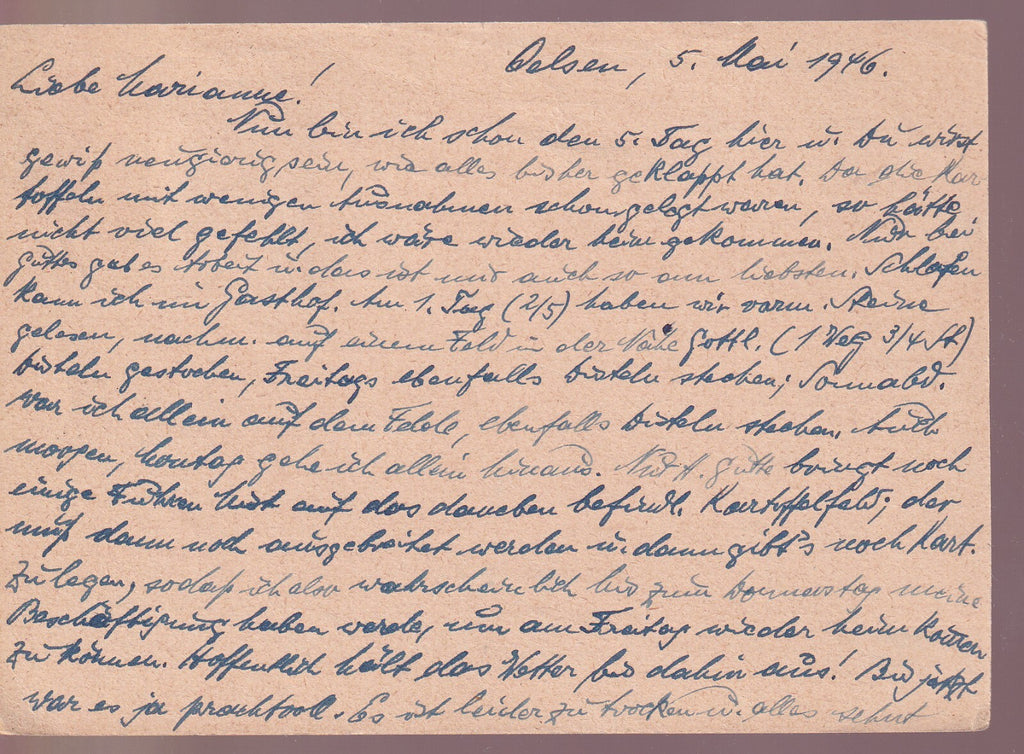 Oelsen, 5. Mai 1946.
Liebe Marianne!
Nun bin ich schon den 5. Tag hier u. Du wirst
gewiß neugierig sein, wie alles bisher geklappt hat. Da die Kar-
toffeln mit wenigen Ausnahmen schon gelegt waren, so hätte
nicht viel gefehlt, ich wäre wieder heim gekommen. Nur bei
Guttes gab es Arbeit u. das ist mir auch so am liebsten. Schlafen
kann ich im Gasthof. Am 1. Tag (2/5) haben wir vorm. Steine
gelesen, nachm. auf einem Feld in der Nähe Gottl. (1 Weg 3/4 St)
Disteln gestochen, Freitags ebenfalls Disteln stechen; Sonnabd.
war ich allein auf dem Felde, ebenfalls Disteln stechen. Auch
morgen, Montag gehe ich allein hinaus. Nur H. Gutte bringt noch
einige Fuhren Mist auf das daneben befindl. Kartoffelfeld; der
muß dann noch ausgebreitet werden u. dann gibt's noch Kart.
zu legen, sodaß ich also wahrscheinlich bis zum Donnerstag meine
Beschäftigung haben werde, um am Freitag wieder heim kommen
zu können. Hoffentlich hält das Wetter bis dahin aus! Bis jetzt
war es ja prachtvoll. Es ist leider zu trocken u. alles sehnt